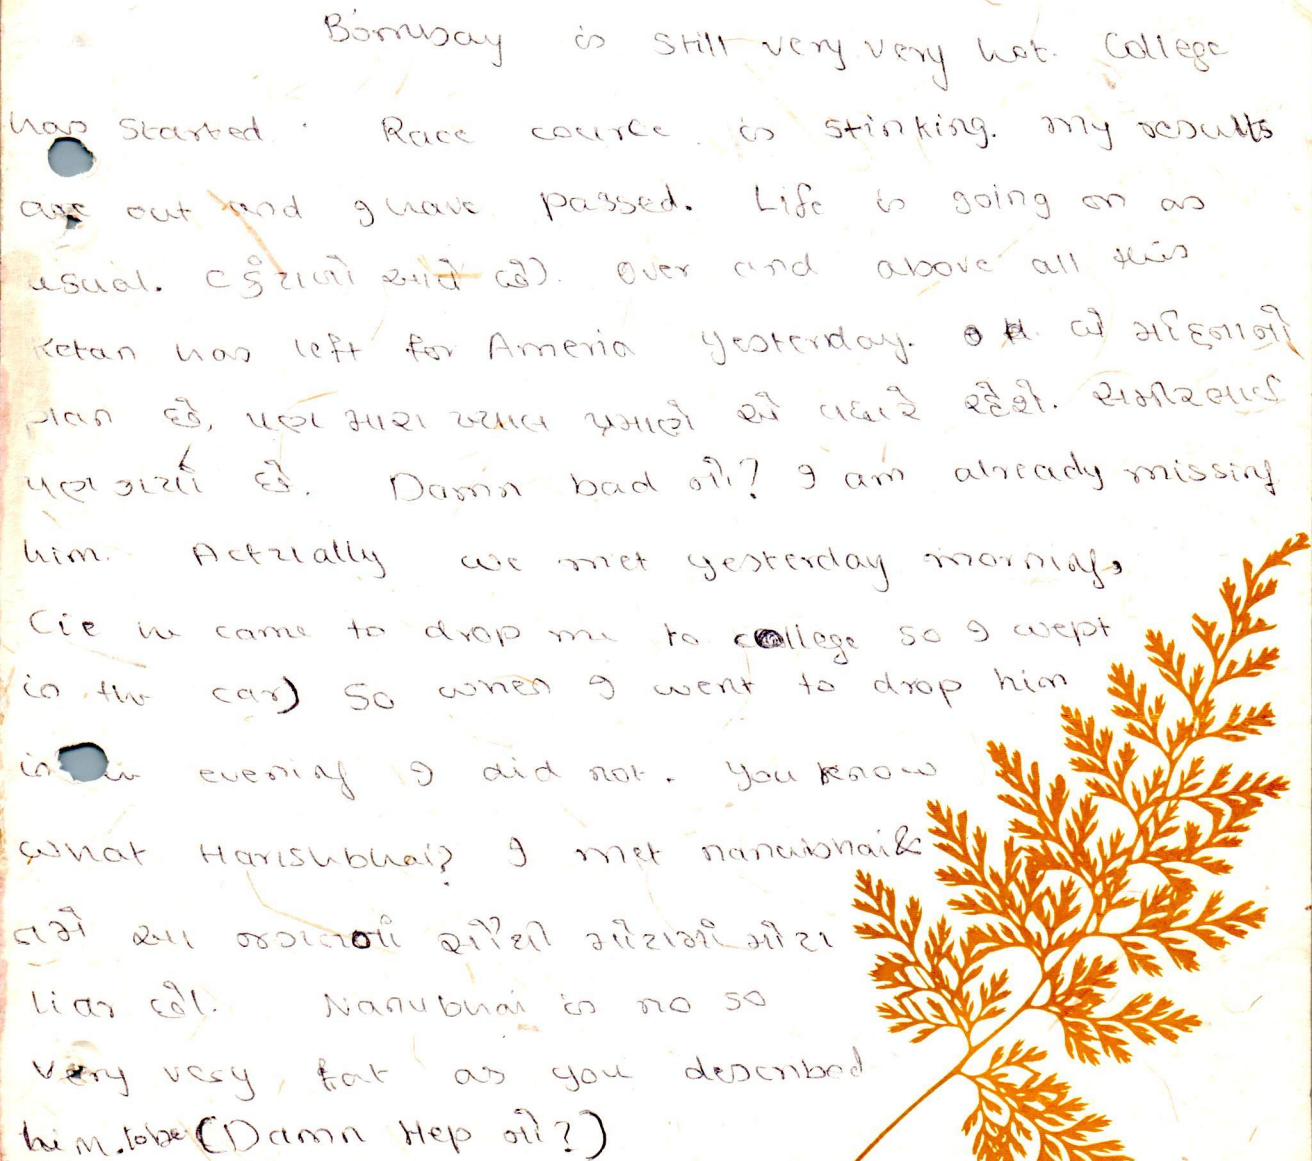 Bombay is still very very hot. College
has started. Race course is stinking. my results
are out and I have passed. Life is going on as
usual. કંટાળો આવે છે. Over and above all this
Ketan has left for Ameria yesterday. બે મહિનાનો
plan છે, પણ મારા ખ્યાલ પ્રમાણે એ વધારે રહેશે. સમીરભાઈ
પણ ગયા છે. Damn bad નૈ? I am already missing
him. Actually we met yesterday morning,
(ie he came to drop me to college so I wept
in the car) So when I went to drop him
in the evening I did not. You know
what Harishbhai? I met nanubhai &
તમે આ જગતનાં સૌથી મોટામાં મોટા
liar છો. Nanubhai is no so
very very fat as you described
him.tobe (Damn Hep નૈ?)